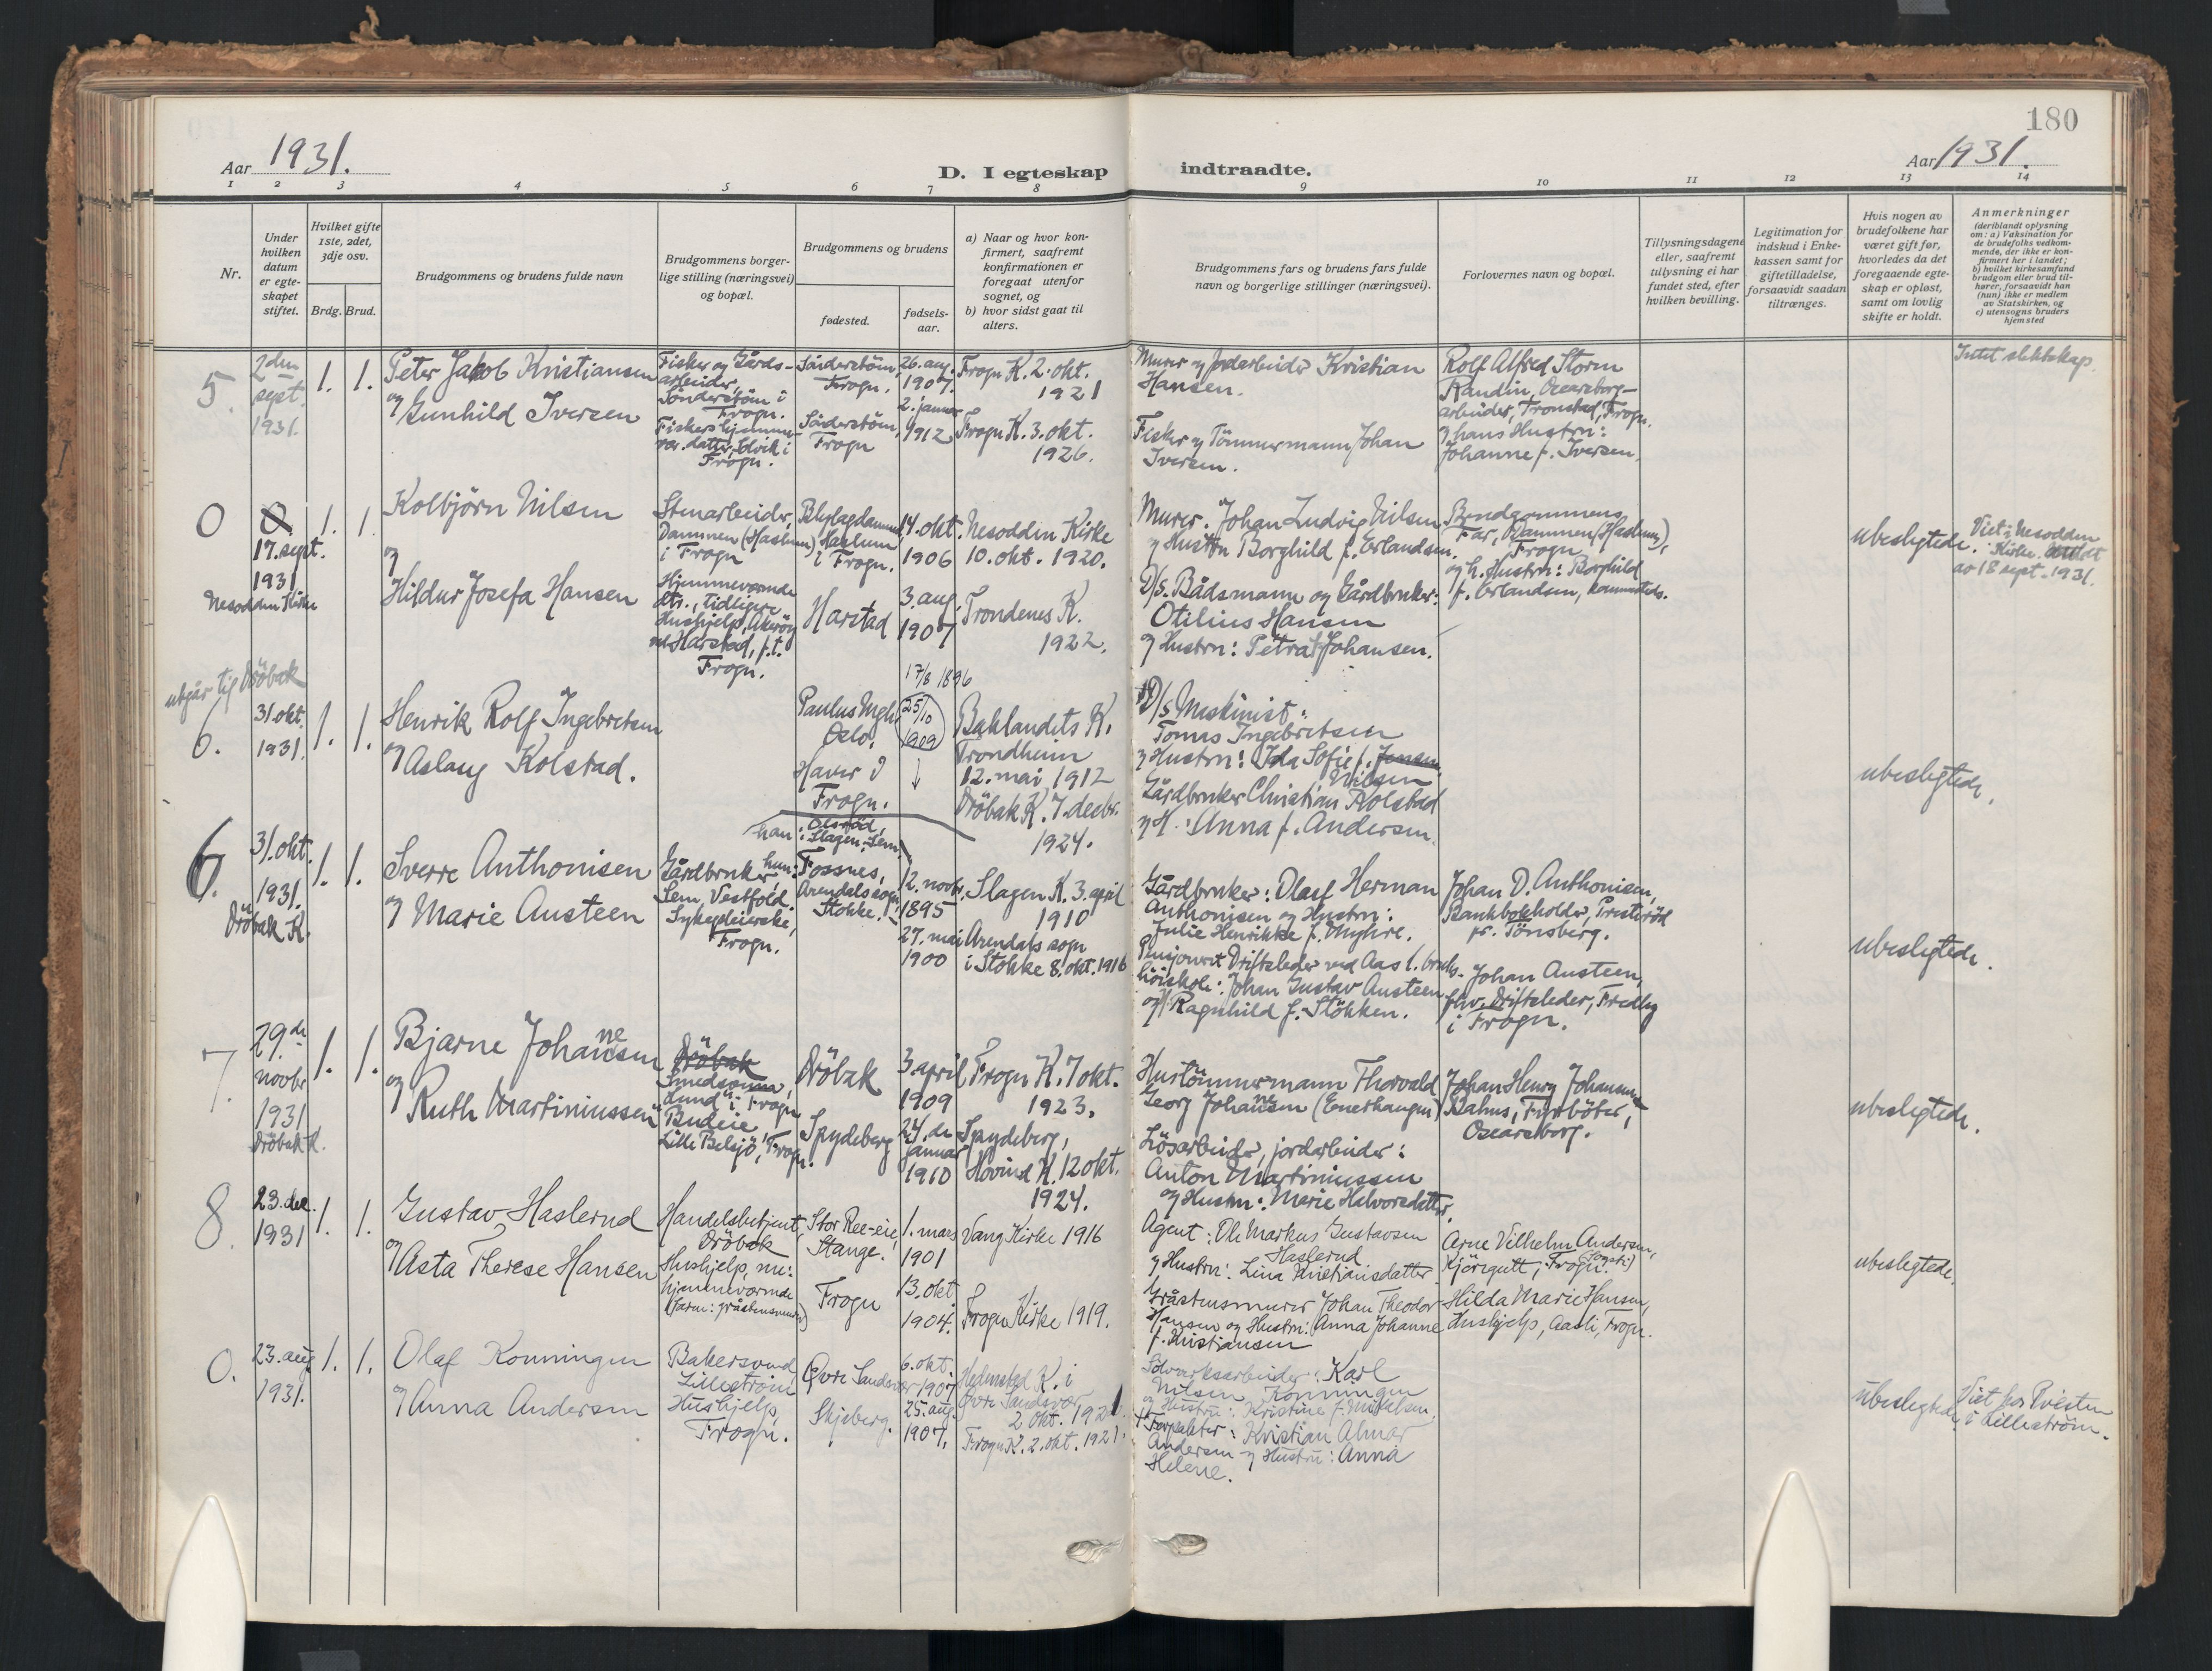 180
Aar 1931.
D. I egteskap indtraadte.
Aar 1931.
1 2 3 4 5 6 7 8 9 10 11 12 13 14
Nr.
Under
hvilken
datum
er egte-
skapet
stiftet.
Hvilket gifte
1ste, 2det,
3dje osv.
Brdg. Brud.
Brudgommens og brudens fulde navn
Brudgommens borger-
lige stilling (næringsvei)
og bopæl.
Brudgommens og brudens
fødested.
fødsels-
aar.
a) Naar og hvor kon-
firmert, saafremt
konfirmationen er
foregaat utenfor
sognet, og
b) hvor sidst gaat til
alters.
Brudgommens fars og brudens fars fulde
navn og borgerlige stillinger (næringsvei).
Forlovernes navn og bopæl.
Tillysningsdagene
eller, saafremt
tillysning ei har
fundet sted, efter
hvilken bevilling.
Legitimation for
indskud i Enke-
kassen samt for
giftetilladelse,
forsaavidt saadan
tiltrænges.
Hvis nogen av
brudefolkene har
været gift før,
hvorledes da det
foregaaende egte-
skap er opløst,
samt om lovlig
skifte er holdt.
Anmerkninger
(deriblandt oplysning
om: a) Vaksination for
de brudefolks vedkom-
mende, der ikke er kon-
firmert her i landet;
b) hvilket kirkesamfund
brudgom eller brud til-
hører, forsaavidt han
(hun) ikke er medlem
av Statskirken, og
c) utensogns bruders
hjemsted
5.
2den
sept.
1931.
1. 1.
Peter Jakob Kristiansen
og
Gunhild Iversen
Fisker og Gårds-
arbeider,
Sönderstöm i
Frogn.
Fiskers hjemme-
vær. datter, Elvik i
Frogn.
Sönderstöm
Frogn.
Sönderstöm,
Frogn
26. aug.
1907.
2. januar
1912
Frogn K. 2. okt.
1921
Frogn K. 3. okt.
1926.
Murer og Jordarbeider Kristian
Hansen.
Fisker og Tömmermann Johan
Iversen.
Rolf Alfred Storm
Randin, Oscarsborg-
arbeider, Tronstad, Frogn.
og hans Hustru:
Johanne f. Iversen.
Intet slektskap.
0
17. sept.
1931
Nesodden Kirke
1. 1
Kolbjörn Nilsen
og
Hildur Josefa Hansen
Stenarbeider,
Dammen (Haslum)
i Frogn
Hjemmeværende
dtr., tidligere
Hushjelp, Akeröy
ved Harstad, p.t.
Frogn.
Haslum
i Frogn.
Harstad
14. okt.
1906
3. aug.
1907
Nesodden Kirke
10. okt. 1920.
Trondenes K.
1922.
Murer. Johan Ludvig Nilsen
og Hustru Borghild f. Erlandsen.
D/s. Bådsmann og Gårdbruker:
Otilius Hansen
og Hustru: Petra f. Johansen.
Brudgommens
Far, Dammen (Haslum),
Frogn
og h. Hustru: Borghild
f. Erlandsen, sammesteds.
ubeslegtede.
Viet i Nesodden
Kirke.
av 18 sept. 1931.
utgår til Dröbak
6.
31. okt.
1931.
1. 1.
Henrik Rolf Ingebretsen
og Aslaug Kolstad.
Paulus Mgh.
Oslo.
Haver i
Frogn.
17/8 1896
25/10
1909
Baklandets K.
Trondheim
12. mai 1912
Dröbak K. 7. decbr.
1924.
D/s Maskinist:
Tomas Ingebretsen
og Hustru: Ida Sofie f. Jensen
Nilsen
Gårdbruker Christian Kolstad
og H.: Anna f. Andersen
ubeslegtede.
6.
31. okt.
1931.
Dröbak K.
1. 1.
Sverre Anthonisen
og Marie Austeen
Gårdbruker,
Sem, Vestfold.
Sykepleierske,
Frogn.
han: Olsröd,
i Slagen, Sem.
hun: Fossnes,
Arendals sogn,
Stokke.
12. novbr.
1895
27. mai
1900
Slagen K. 3. april
1910
Arendals sogn
i Stokke 8. okt. 1916
Gårdbruker: Olaf Herman
Anthonisen og Hustru:
Julie Henrikke f. Myhre.
Pensjonert Driftsleder ved Aas l. bruks-
höiskole: Johan Gustav Austeen
og Ragnhild f. Stökken.
Johan D. Anthonisen,
Bankbokholder, Presteröd
pr. Tönsberg.
Johan Austeen,
fhv. Driftsleder, Fredly
i Frogn.
ubeslegtede.
7.
29. de
novbr
1931
Dröbak K.
1. 1.
Bjarne Johannesen
og
Ruth Martiniussen
Dröbak
Smedsönn,
Lund i Frogn
Budeie
Lille Belsjö, Frogn.
Dröbak
Spydeberg
3. april
1909
24. de
januar
1910
Frogn K. 7 okt.
1923.
Spydeberg,
Hovind K. 12 okt.
1924.
Hustömmermann Thorvald
Georg Johannesen (Enerhaugen)
Lösarbeider, jordarbeider:
Anton Martiniussen
og Hustru: Marie Halvorsdatter.
Johan Henry Johansen
Bahus, Fyrböter,
Oscarsborg.
ubeslegtede.
8.
23. des.
1931
1. 1.
Gustav Haslerud
og Asta Therese Hansen
Handelsbetjent,
Dröbak
Hushjelp, nu:
hjemmeværende
Stor Ree-eie,
Stange.
Frogn
1. mars
1901
13. okt
1904.
Vang Kirke 1916
Frogn Kirke 1919.
Agent: Ole Markus Gustavsen
Haslerud
og Hustru: Lina Kristiansdatter
Gråstensmurer Johan Theodor
Hansen og Hustru: Anna Johanne
f. Kristiansen
Arne Vilhelm Andersen,
Kjöregutt, Frogn.
Hilda Marie Hansen,
Hushjelp, Aasli, Frogn.
ubeslegtede.
0.
23. aug
1931.
1. 1.
Olaf Konningen
og Anna Andersen
Bakersvend
Lilleström
Hushjelp,
Frogn.
Øvre Sandsvær
Skjeberg.
6. okt.
1907
25. aug.
1907.
Hedensted K. i
Øvre Sandsvær
2 okt. 1921.
Frogn K. 2. okt. 1921.
Sölvverksarbeider: Karl
Nilsen Konningen
og Hustru: Kristine f. Mikkelsen.
Forpakter: Kristian Almar
Andersen og Hustru: Anna
Helene.
ubeslegtede
Viet hos Presten
i Lilleström.